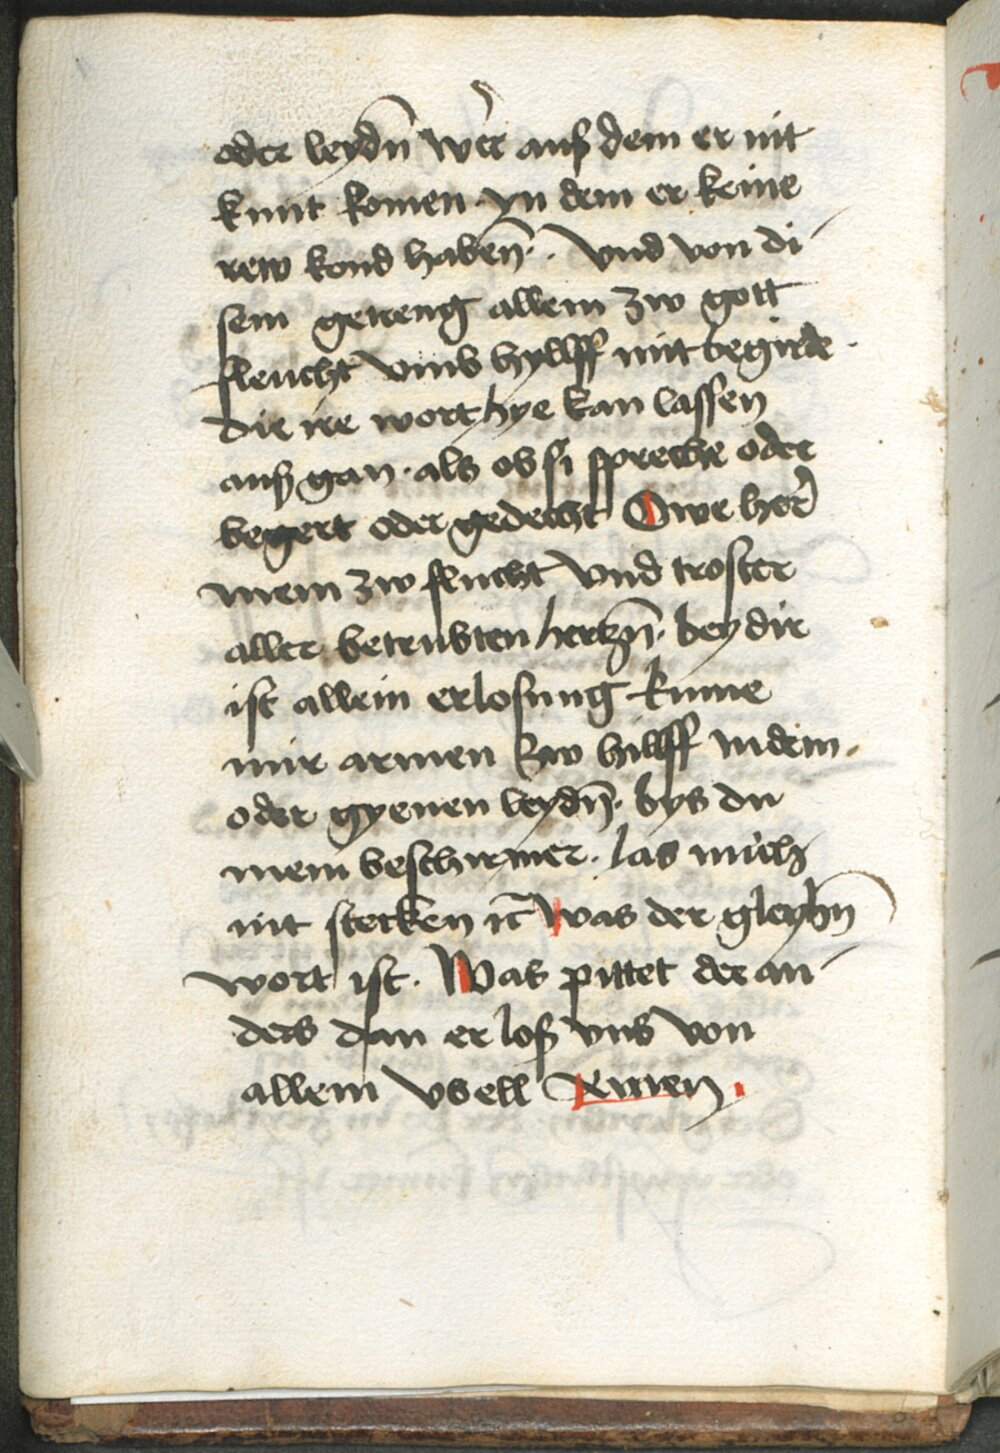 oder leydn̄ wer auß dem er nit
kunt komen · yn dem er keine
rew kond haben̄ · Vnd von di
sem getreng allem zw gott
fleucht vmb hyllff mit begirde ·
die ire wort hye kan lassen
auß gan · als ob si spreche oder
begert oder gedecht Owe her
mein zw flucht vnd troster
aller betrubten hertzn̄ · bey dir
ist allein erlosung kume
mir armen zw hillff in dem
oder gyenen leydn̄ · bys du
mein beschirmer · las mich
nit stecken ꝛc̄ Was der gleyhn̄
wort ist · Was pittet der an
ders dan er loß vns von
allem vbell Amen ·